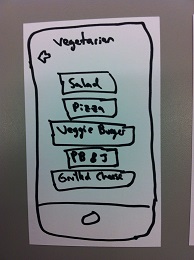 Vegetarian
Salad
Pizza
Veggie Burger
PB & J
Grilld Cheese